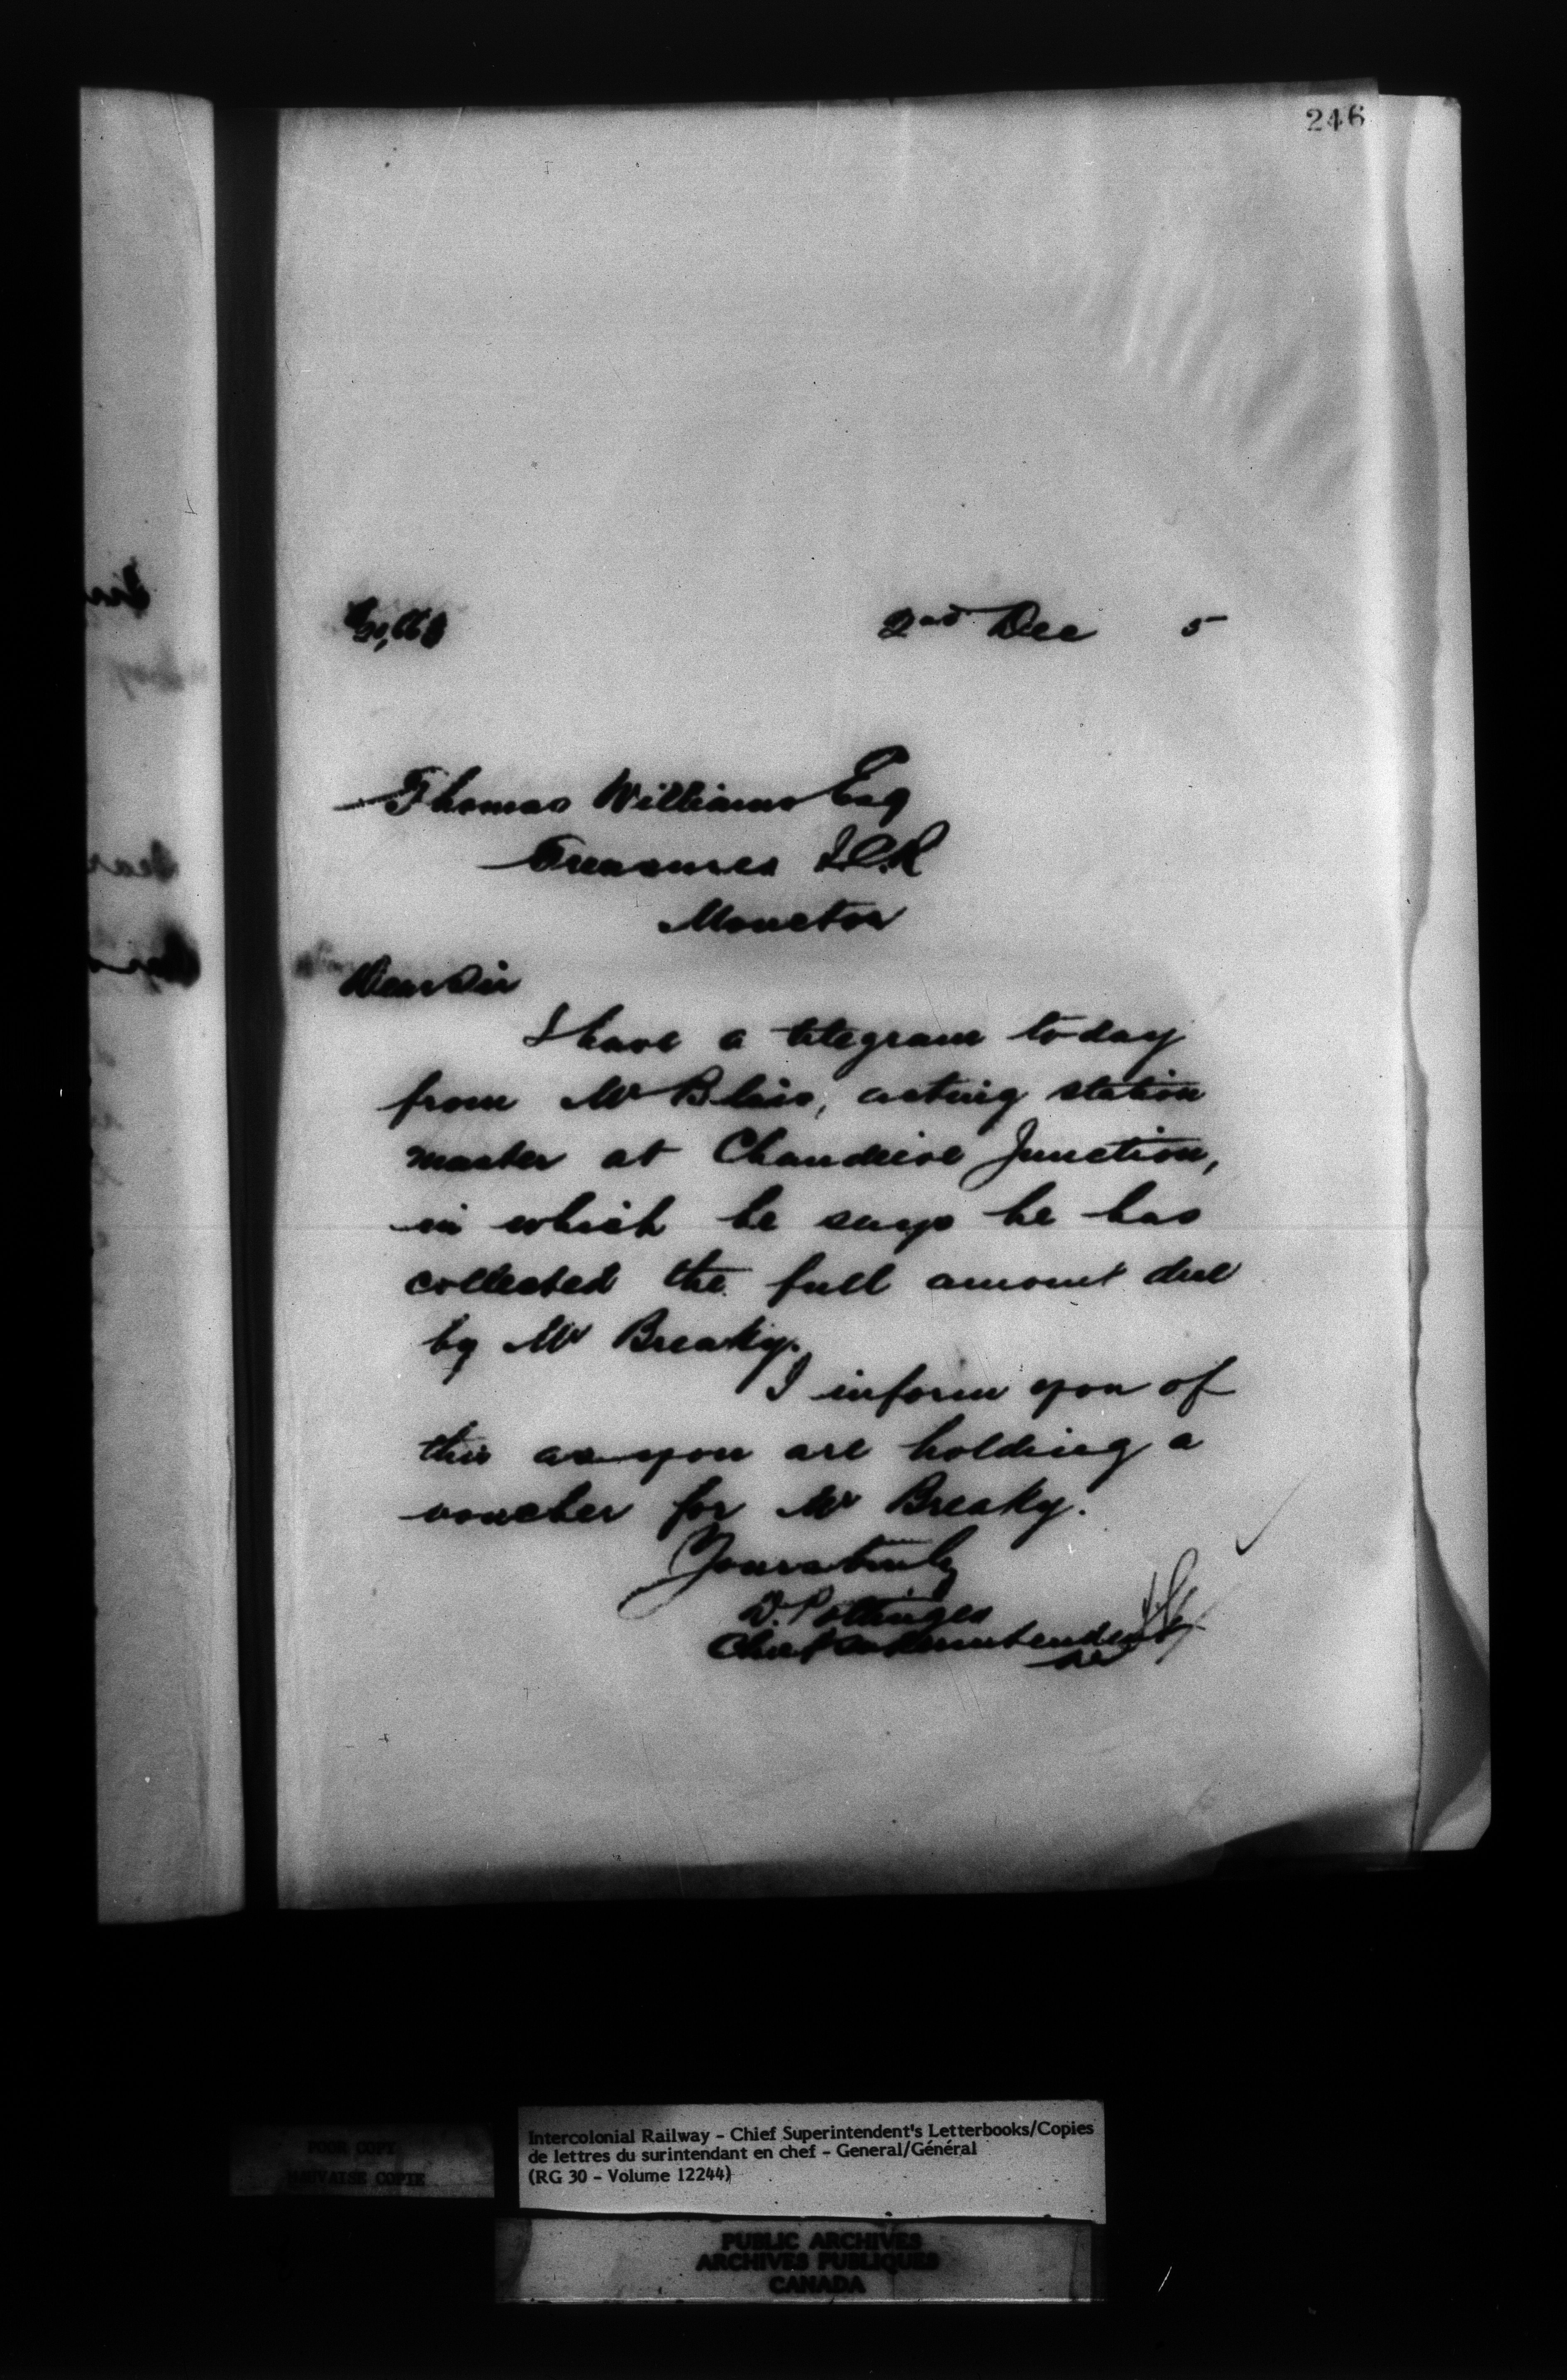 246
2nd Dec 5
Thomas Williams Esq
Treasurer I.C.R
Moncton
Dear Sir
I have a telegram today
from Mr Bliss, acting station
master at Chaudiere Junction,
in which he says he has
collected the full amount due
by Mr Breaky.
I inform you of
this as you are holding a
voucher for Mr Breaky.
Yours truly
D. Pottinger
Chief Superintendent
POOR COPY
MAUVAISE COPIE
Intercolonial Railway - Chief Superintendent's Letterbooks/Copies
de lettres du surintendant en chef - General/Général
(RG 30 - Volume 12244)
PUBLIC ARCHIVES
ARCHIVES PUBLIQUES
CANADA